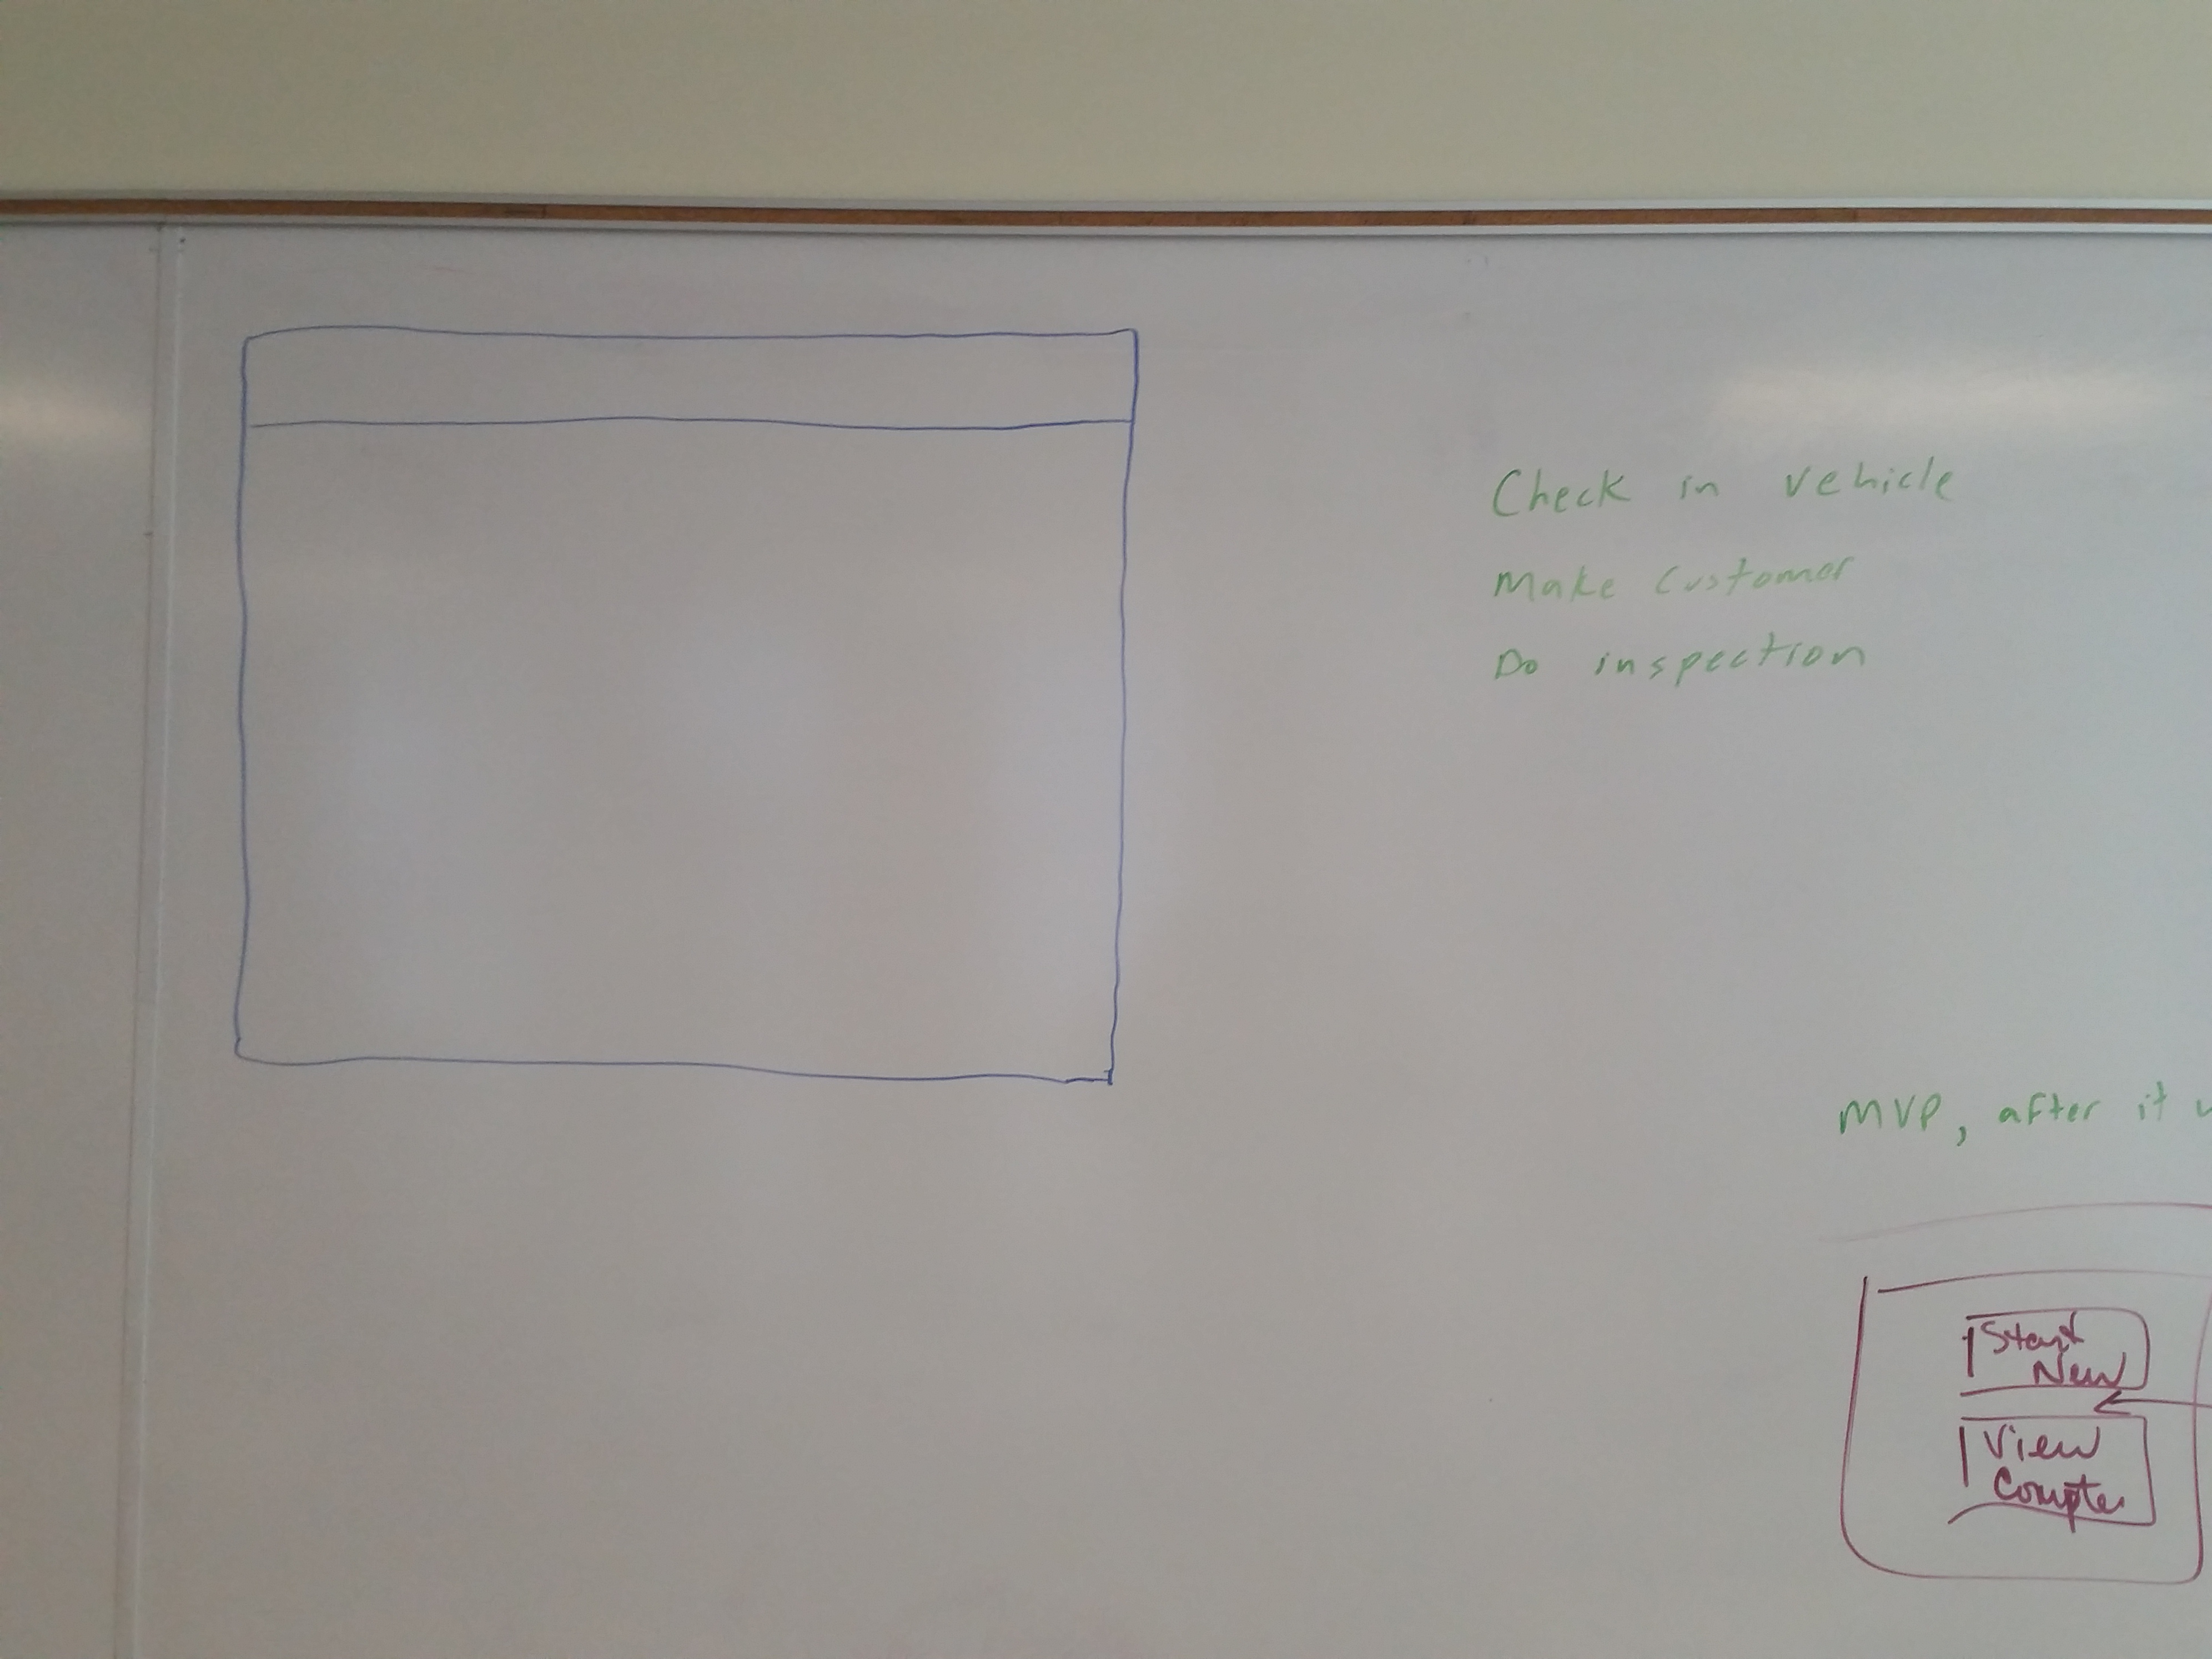 Check in vehicle
Make Customer
Do inspection
MVP, after it
Start
New
View